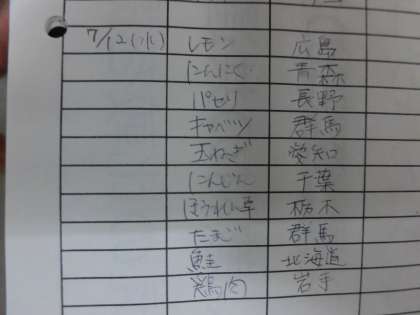 7/12(水) レモン 広島
にんにく 青森
パセリ 長野
キャベツ 群馬
玉ねぎ 愛知
にんじん 千葉
ほうれん草 栃木
たまご 群馬
鮭 北海道
鶏肉 岩手